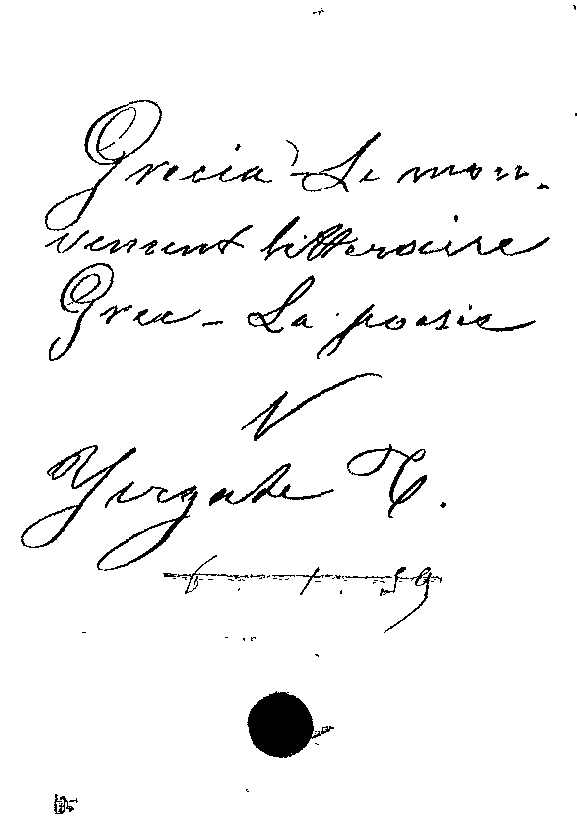 Grecia - Le mou-
vement litteraire
Grec - La poesie
V
Yergate T.
6 . 1 . 59